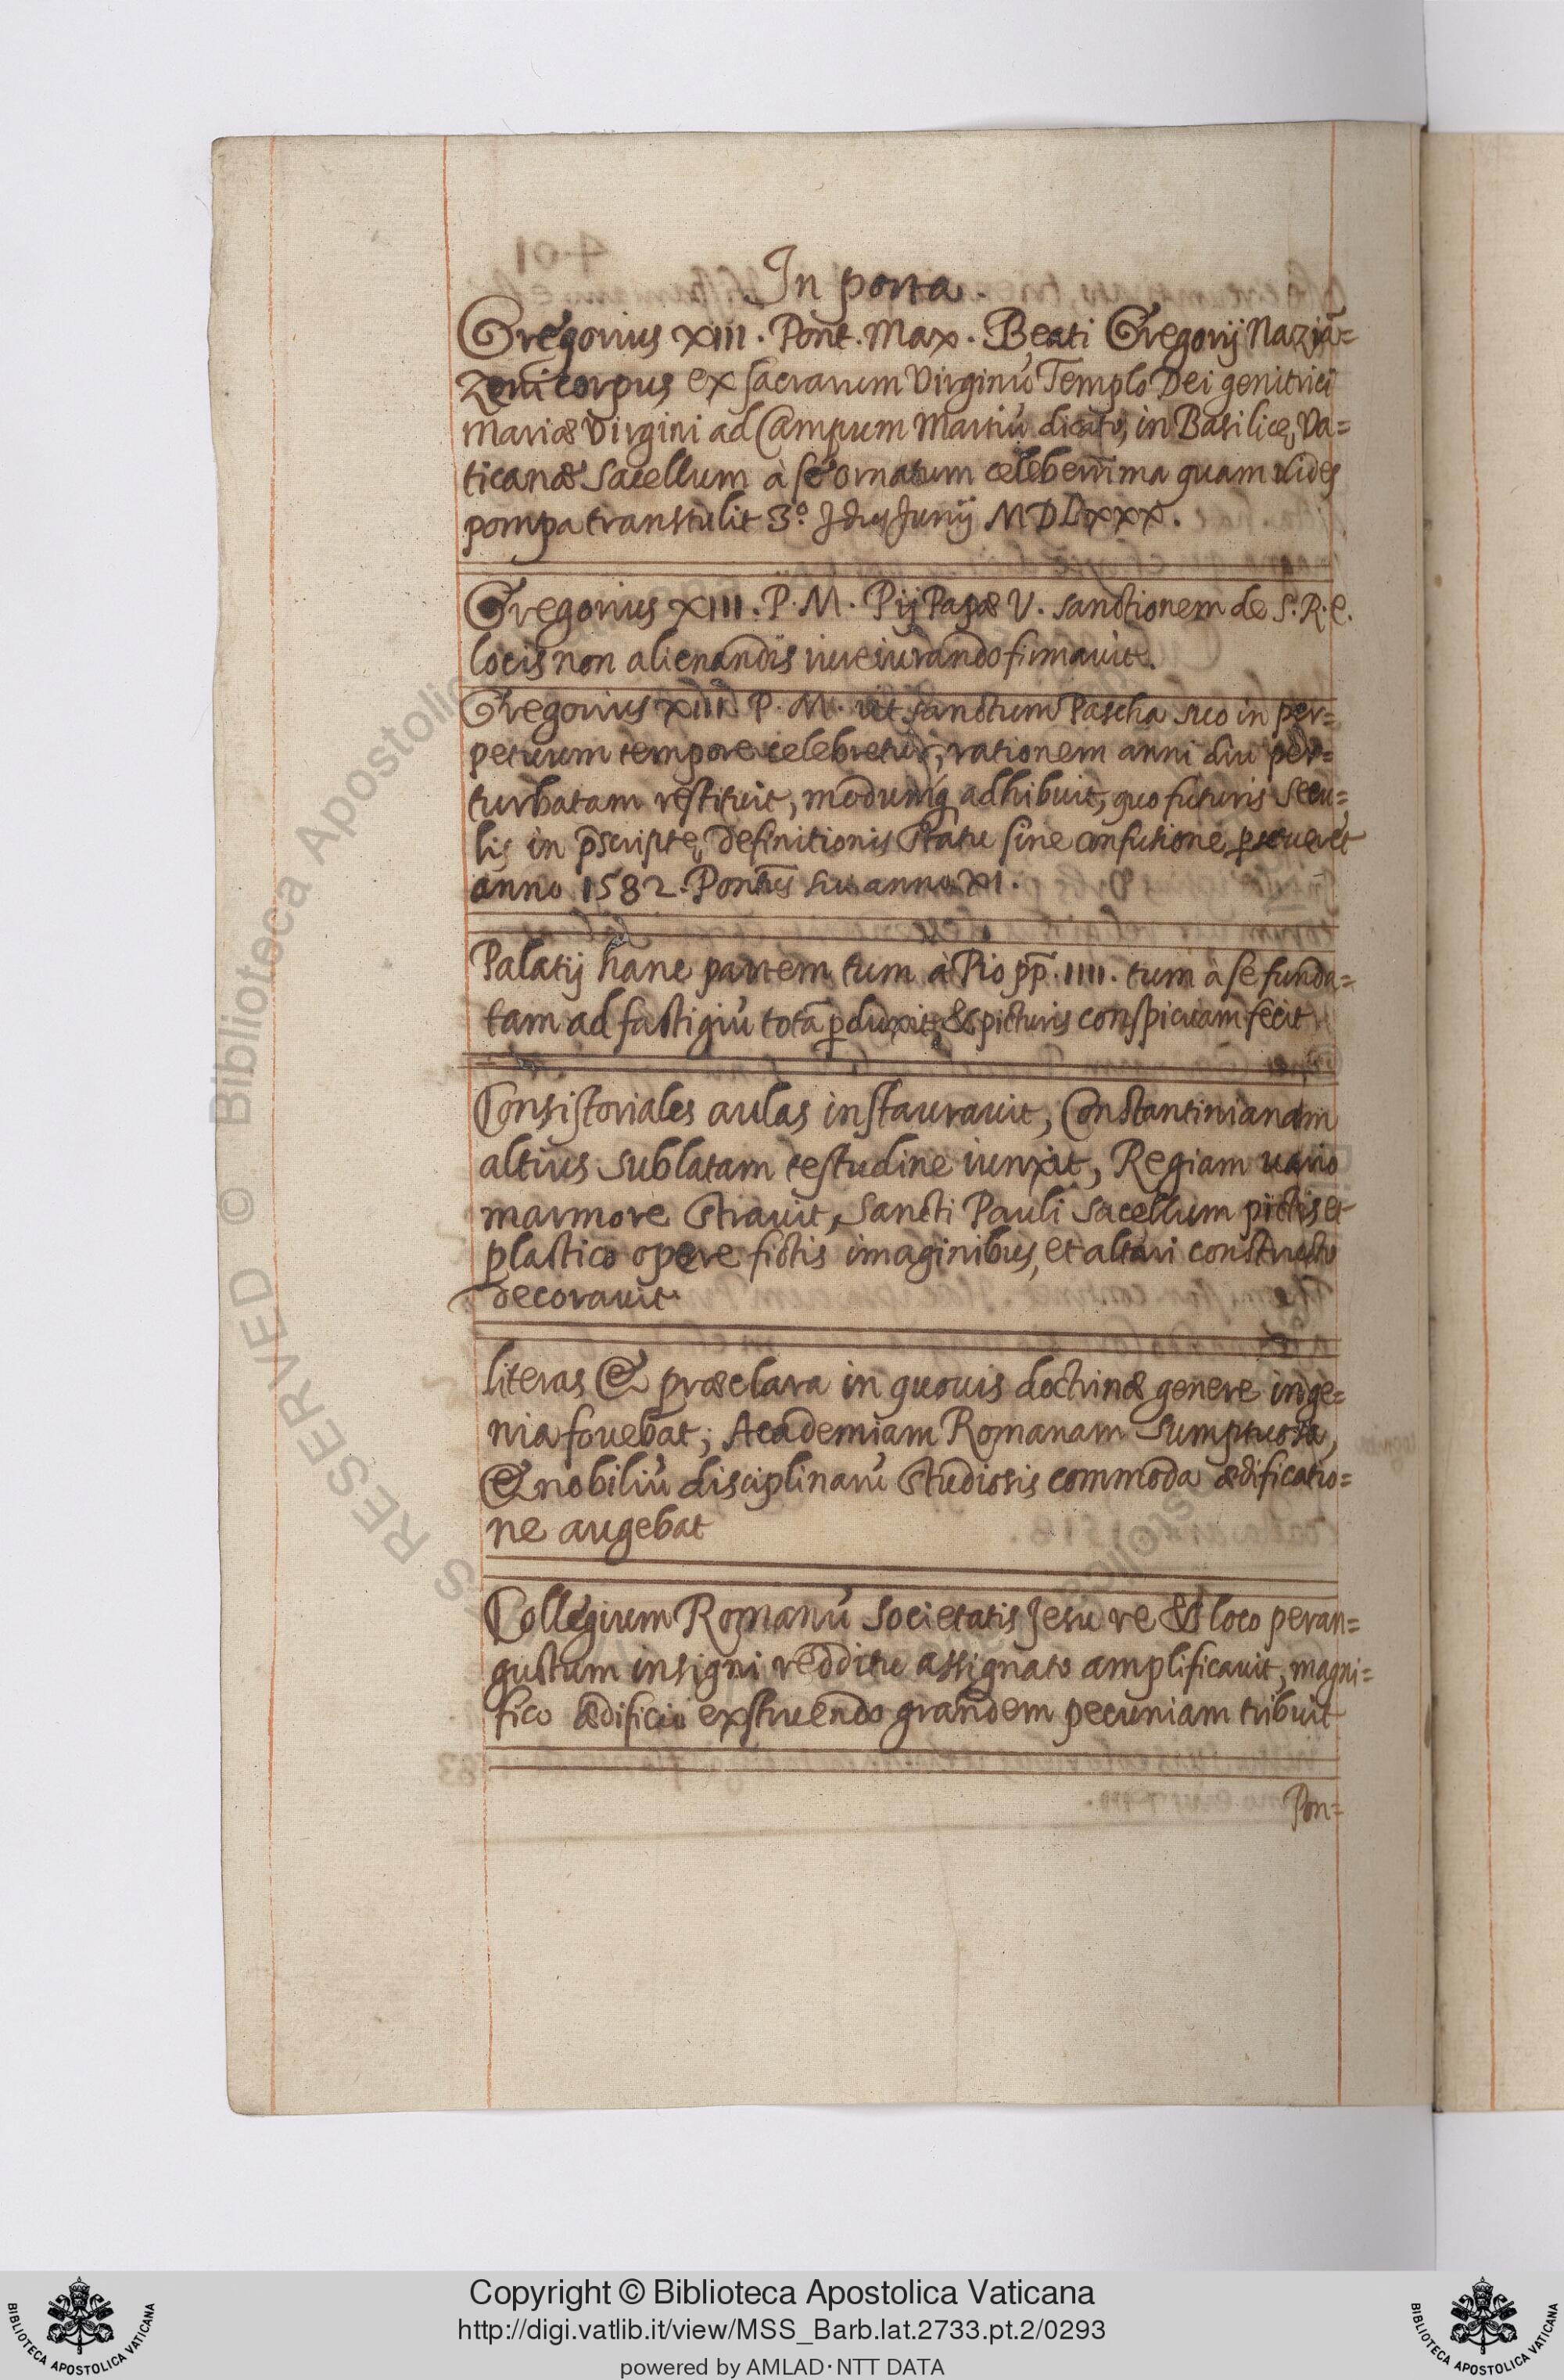 In porta.
Gregorius XIII. Pont. Max. Beati Gregorij Naziã=
zeni corpus ex sacrarum Virginũ Templo Dei genitrici
Mariæ Virgini ad Campum Martiũ dicato, in Basilicę Va=
ticanæ Sacellum à se ornatum celeberrima quam uides
pompa transtulit 3.º Idus Junij MDLXXX.
Gregorius XIII. P. M. Pij Papæ V. sanctionem de S. R. E.
locis non alienandis iureiurando firmauit.
Gregorius XIII P. M. ut sanctum Pascha suo in per=
petuum tempore celebretur, rationem anni diu per=
turbatam restituit, modumq adhibuit, quo futuris secu=
lis in p̄scriptę definitionis statu sine confusione perseueret
anno 1582. Pontus̄ sui anno XI.
Palatij hanc partem tum à Pio pp̄. IIII. tum à se funda=
tam ad fastigiũ totã p̱duxit, & picturis conspicuam fecit
Consistoriales aulas instaurauit, Constantinianam
altius sublatam testudine iunxit, Regiam uario
marmore strauit, Sancti Pauli Sacellum pictis et
plastico opere fictis imaginibus, et altari constructo
decorauit.
literas & præclara in quouis doctrinæ genere inge=
nia fouebat; Academiam Romanam sumptuosa,
& nobiliũ disciplinarũ studiosis commoda ædificatio=
ne augebat
Collegium Romanũ Societatis Jesu re & loco peran=
gustum insigni redditu assignato amplificauit, magni=
fico ædificio exstruendo grandem pecuniam tribuit
Pon=
RESERVED © Biblioteca Apostolica
Copyright © Biblioteca Apostolica Vaticana
http://digi.vatlib.it/view/MSS_Barb.lat.2733.pt.2/0293
powered by AMLAD·NTT DATA
BIBLIOTECA APOSTOLICA VATICANA
BIBLIOTECA APOSTOLICA VATICANA